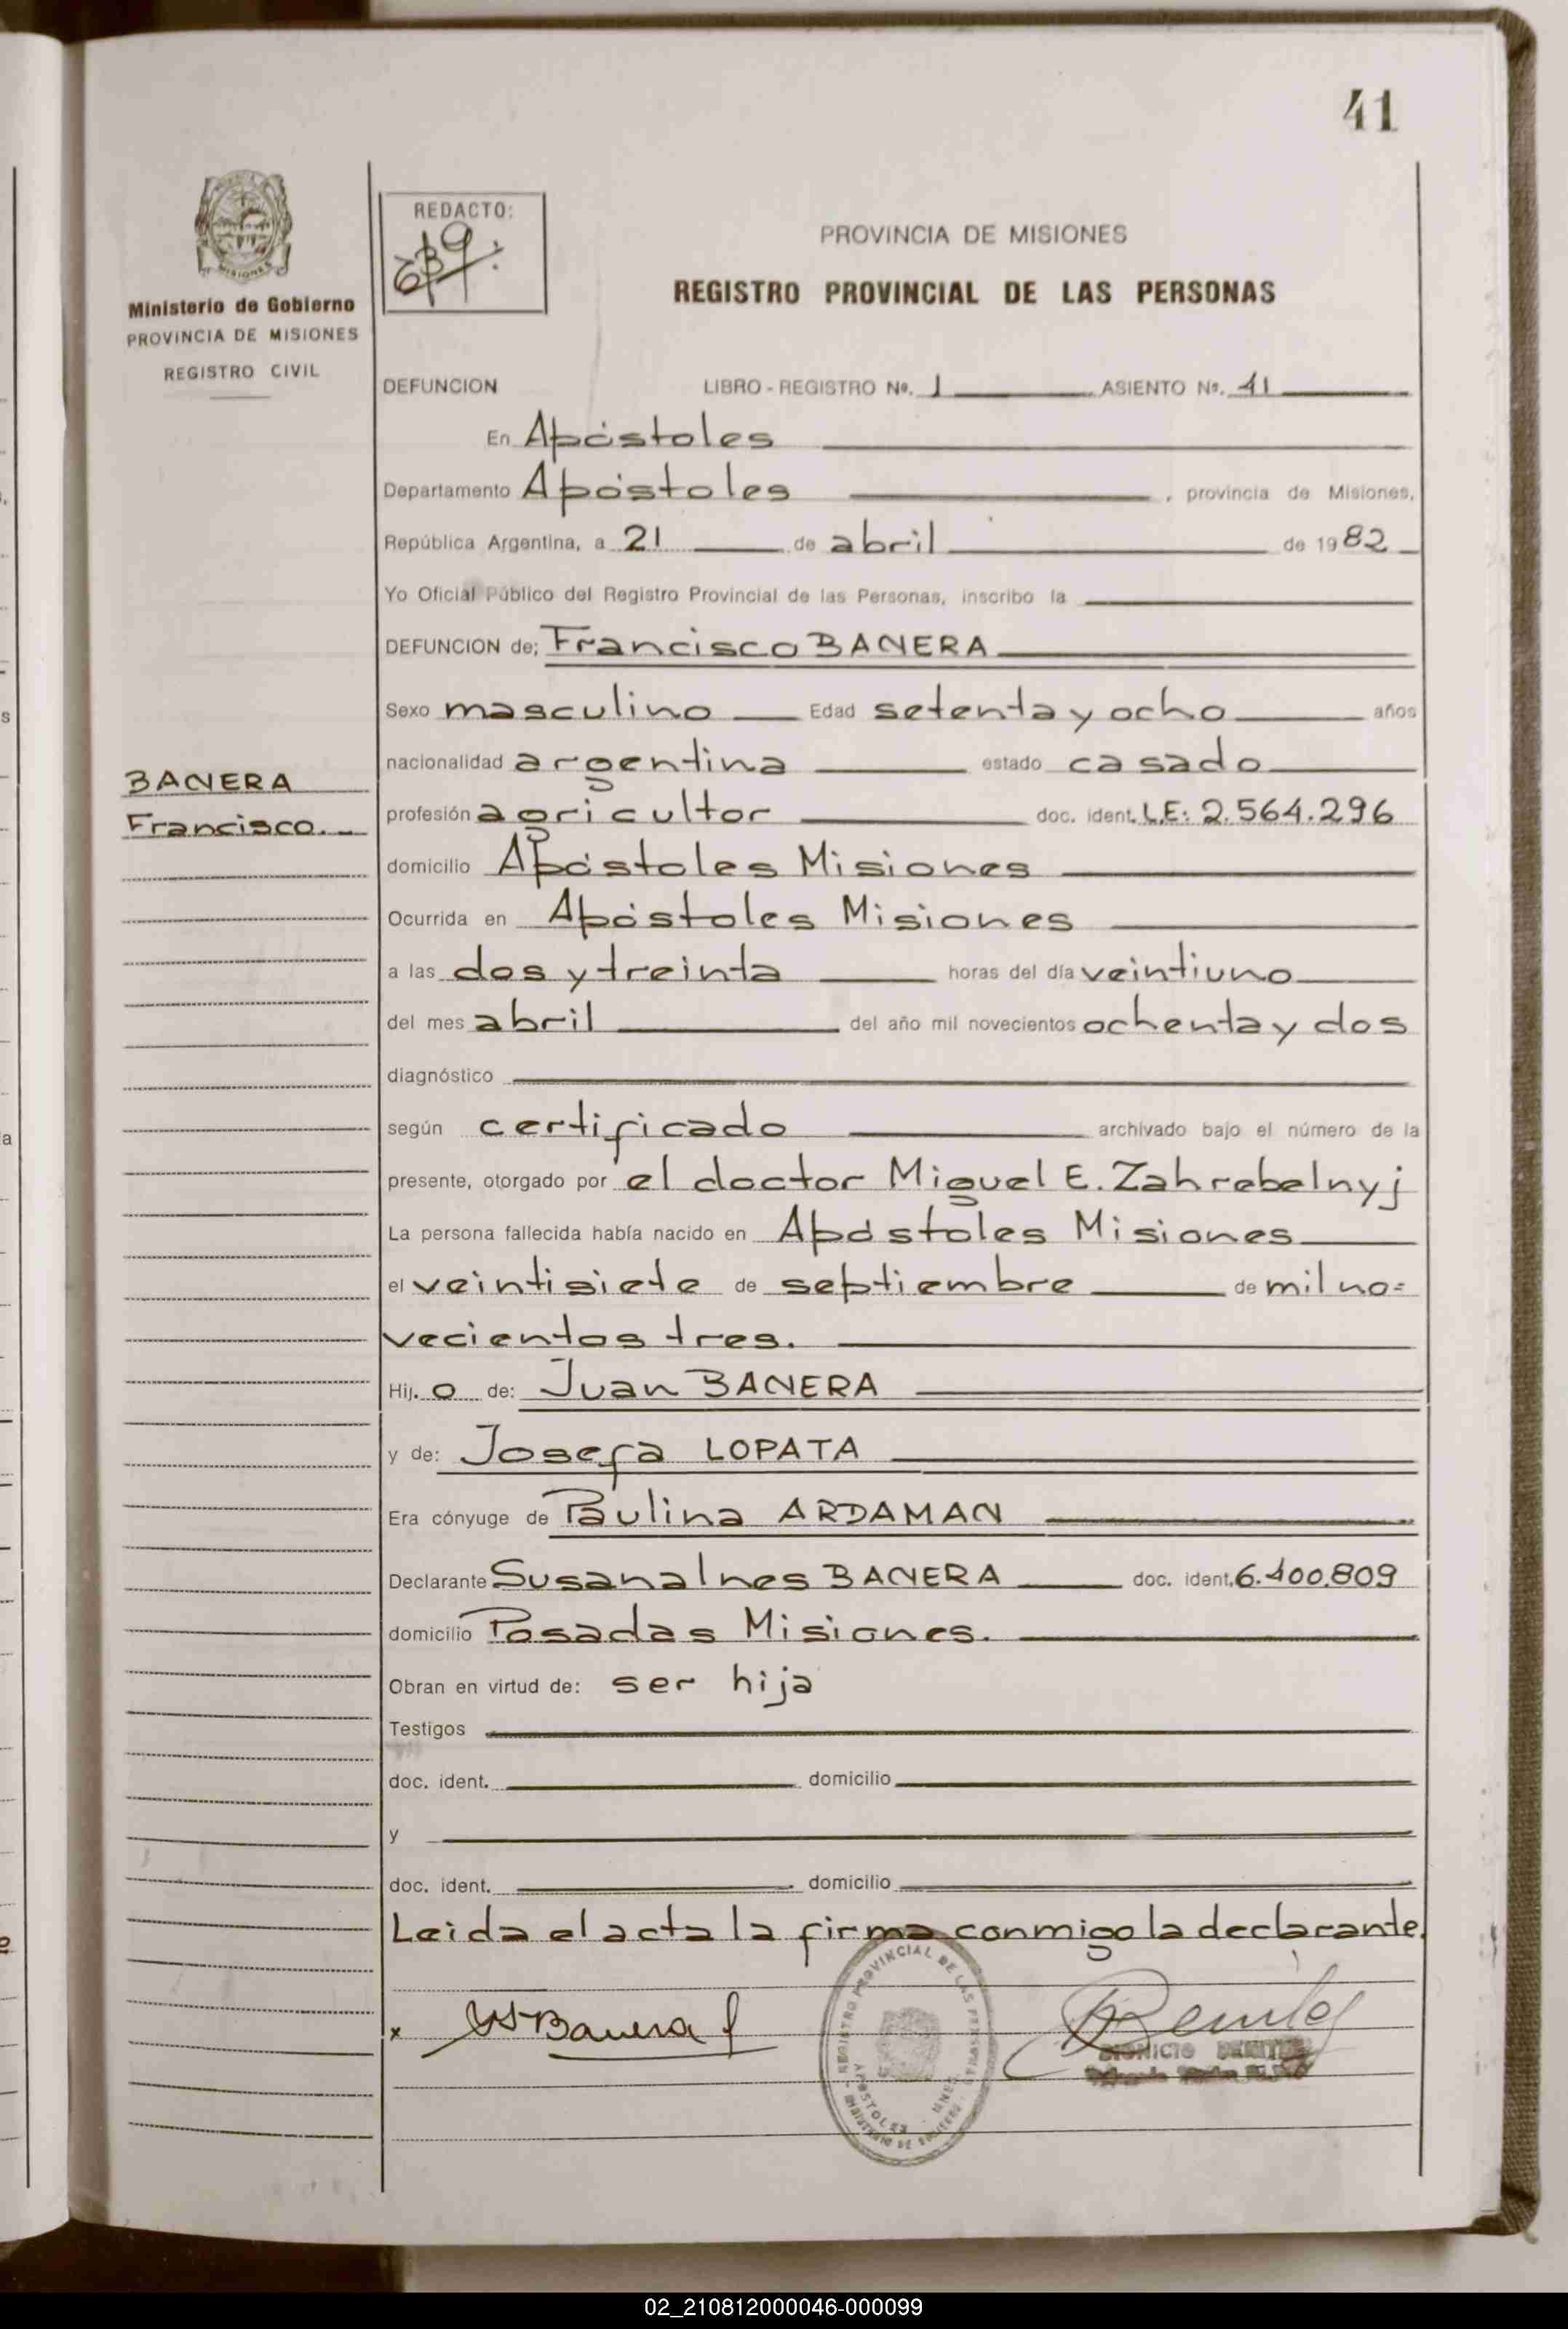 41
MISIONES
Ministerio de Gobierno
PROVINCIA DE MISIONES
REGISTRO CIVIL
REDACTO:
PROVINCIA DE MISIONES
REGISTRO PROVINCIAL DE LAS PERSONAS
DEFUNCION LIBRO - REGISTRO Nº. 1 ASIENTO Nº. 41
En Apóstoles
Departamento Apóstoles , provincia de Misiones,
República Argentina, a 21 de abril de 1982
Yo Oficial Público del Registro Provincial de las Personas, inscribo la
DEFUNCION de; Francisco BANERA
Sexo masculino Edad setenta y ocho años
nacionalidad argentina estado casado
BANERA
Francisco.
profesión agricultor doc. ident. L.E: 2.564.296
domicilio Apóstoles Misiones
Ocurrida en Apóstoles Misiones
a las dos y treinta horas del día veintiuno
del mes abril del año mil novecientos ochenta y dos
diagnóstico
según certificado archivado bajo el número de la
presente, otorgado por el doctor Miguel E. Zahrebelnyj
La persona fallecida había nacido en Apóstoles Misiones
el veintisiete de septiembre de mil no=
vecientos tres.
Hij. o de: Juan BANERA
y de: Josefa LOPATA
Era cónyuge de Paulina ARDAMAN
Declarante Susana Ines BANERA doc. ident. 6.400.809
domicilio Posadas Misiones.
Obran en virtud de: ser hija
Testigos
doc. ident. domicilio
y
doc. ident. domicilio
Leida el acta la firma conmigo la declarante.
x Banera
REGISTRO PROVINCIAL DE LAS PERSONAS
APOSTOLES
DIONICIO BENITEZ
02_210812000046-000099